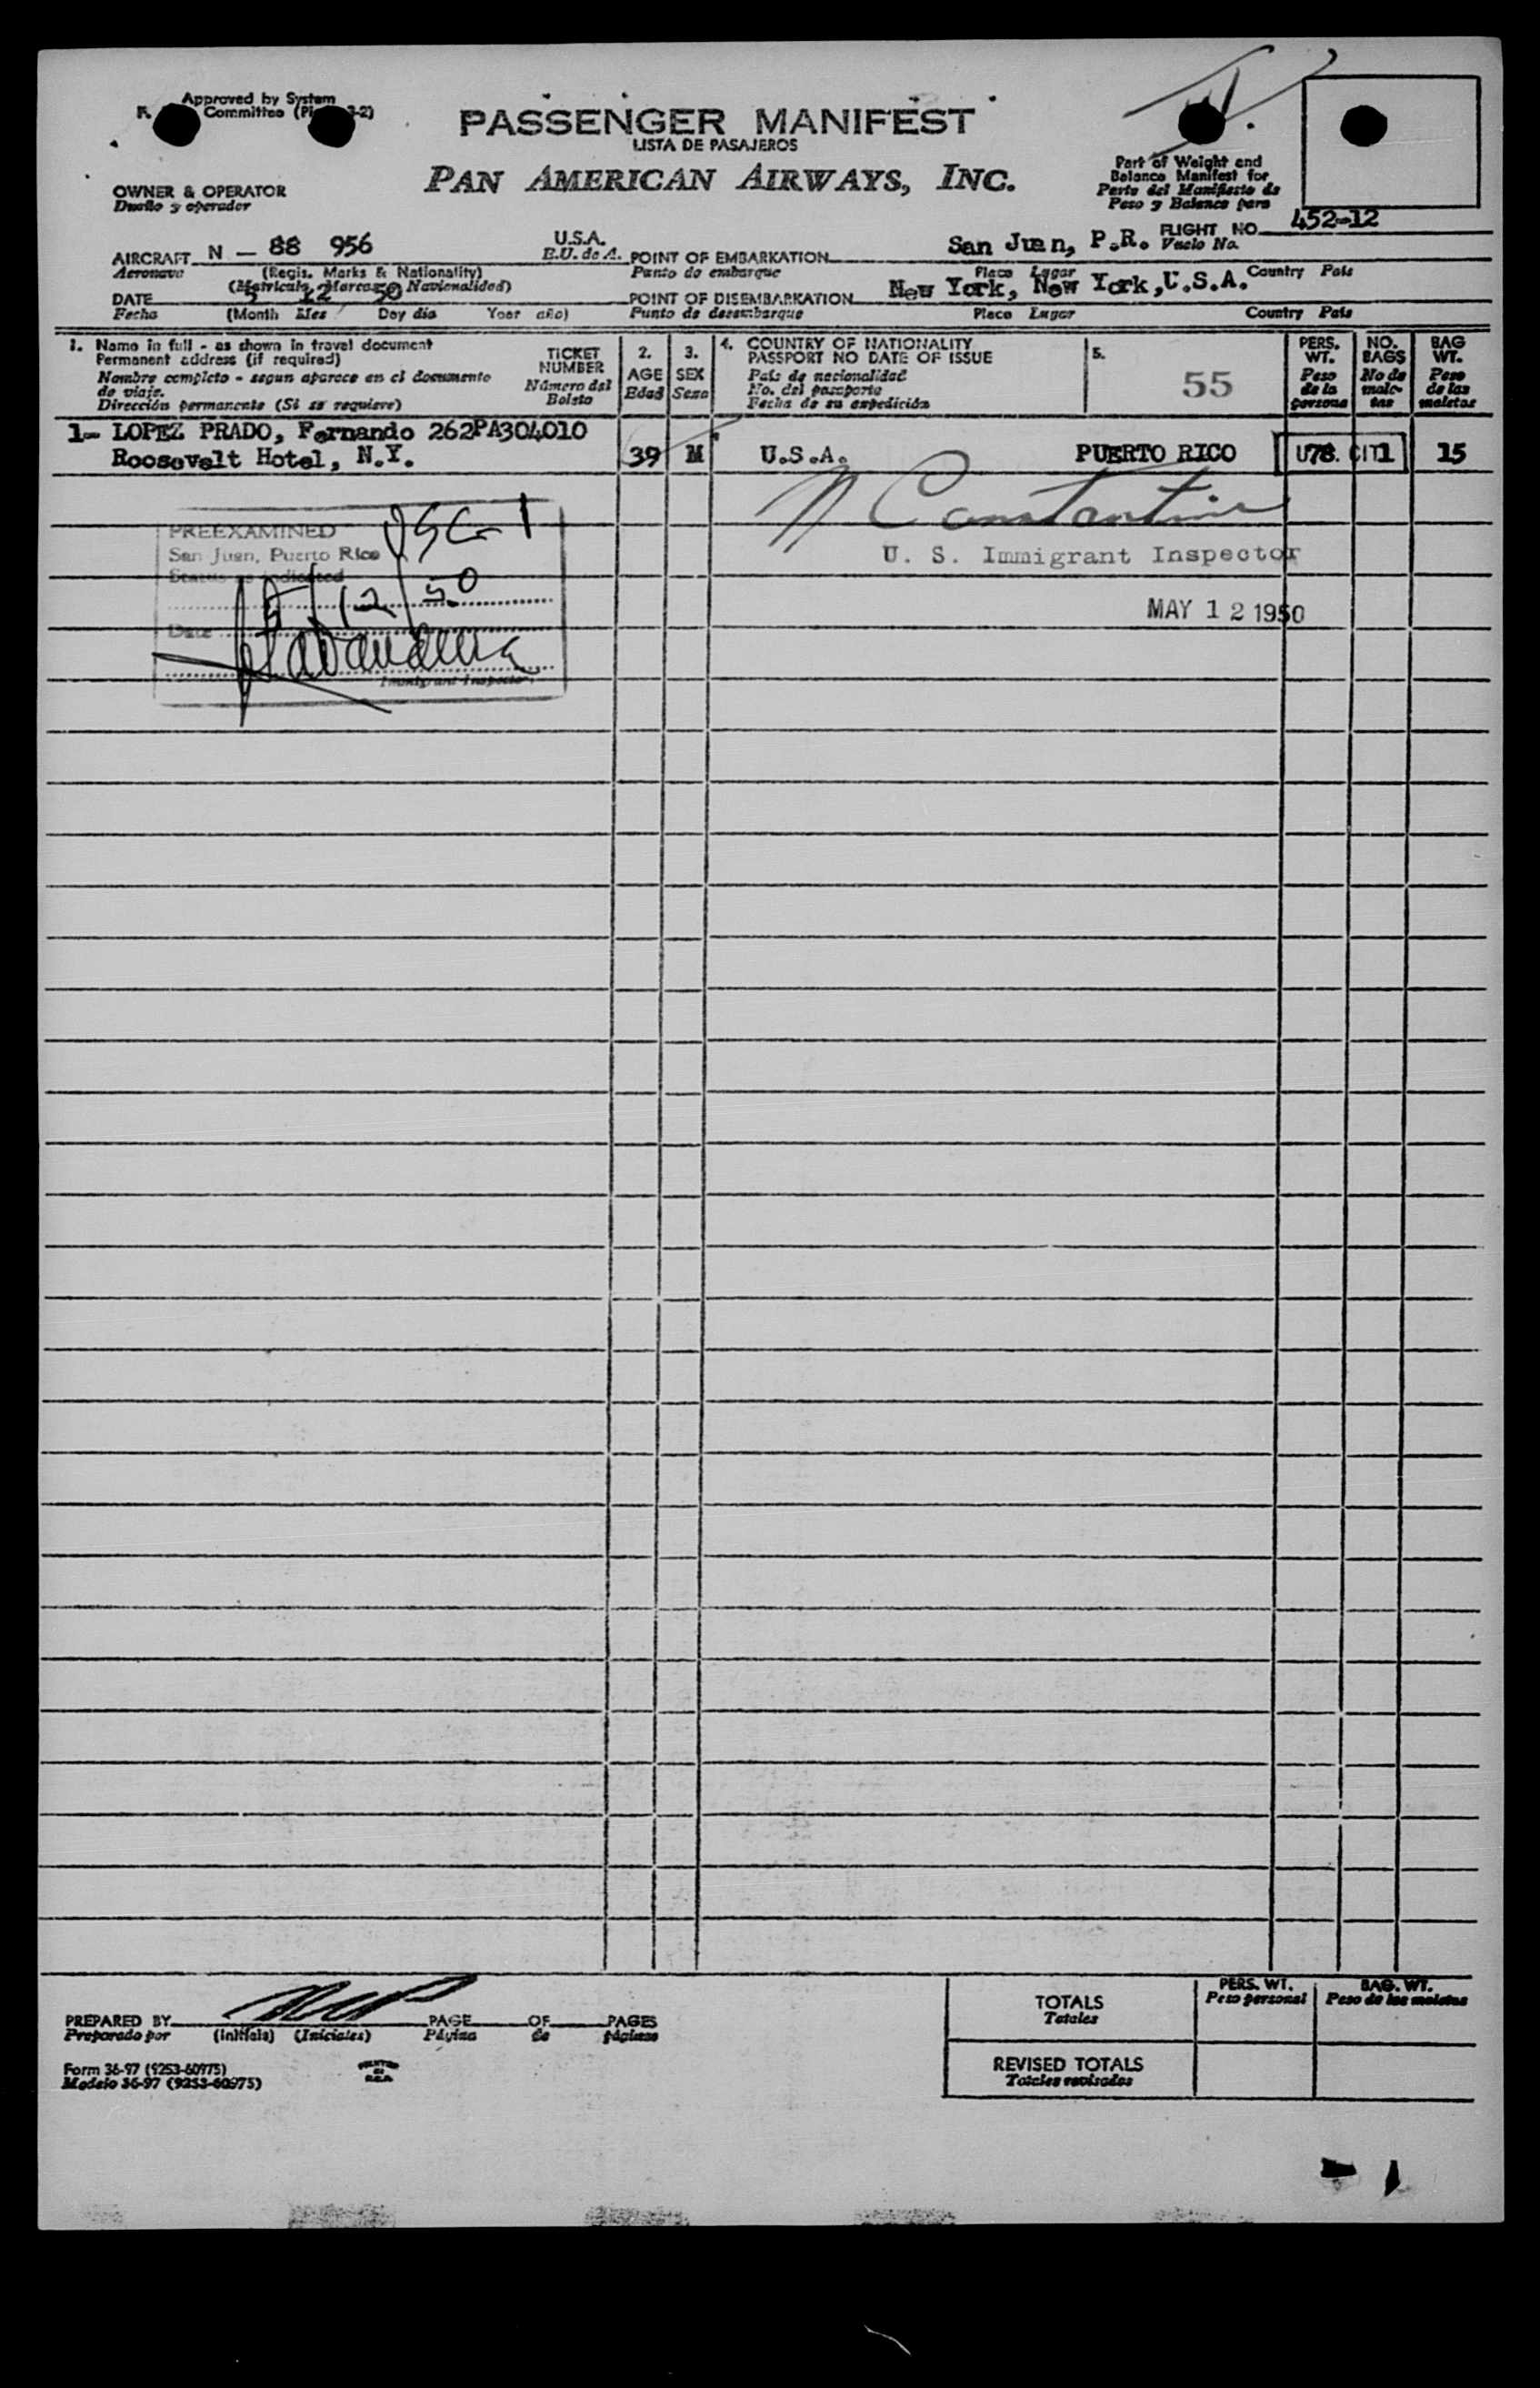 Approved by System
Committee
PASSENGER MANIFEST
LISTA DE PASAJEROS
PAN AMERICAN AIRWAYS, INC.
Part of Weight and
Balance Manifest for
Parte del Manifiesto de
Peso y Balance para
OWNER & OPERATOR
Dueño y operador
FLIGHT NO. 452-12
Vuelo No.
AIRCRAFT N - 88 956 U.S.A.
Aeronave (Regis. Marks & Nationality) E.U. de A.
(Matricula, Marcas & Nacionalidad)
POINT OF EMBARKATION San Juan, P.R.
Punto de embarque Place Lugar Country Pais
DATE 5 12 50
Fecha (Month Mes Day dia Year año)
POINT OF DISEMBARKATION New York, New York, U.S.A.
Punto de desembarque Place Lugar Country Pais
1. Name in full - as shown in travel document
Permanent address (if required)
Nombre completo - segun aparece en el documento
de viaje.
Dirección permanente (Si se requiere)
TICKET
NUMBER
Número del
Boleto
2.
AGE
Edad
3.
SEX
Sexo
4. COUNTRY OF NATIONALITY
PASSPORT NO DATE OF ISSUE
País de nacionalidad
No. del pasaporte
Fecha de su expedición
5.
55
PERS.
WT.
Peso
de la
persona
NO.
BAGS
No de
male-
tas
BAG
WT.
Peso
de las
maletas
1- LOPEZ PRADO, Fernando 262PA304010
Roosevelt Hotel, N.Y. 39 M U.S.A. PUERTO RICO 178 1 15
U.S. CIT
PREEXAMINED
San Juan, Puerto Rico
Status as indicated
Date 5/12/50
Immigrant Inspector
N Constantine
U. S. Immigrant Inspector
MAY 12 1950
PREPARED BY PAGE OF PAGES
Preparado por (Initials) (Iniciales) Página de páginas
Form 36-97 (9253-60975)
Modelo 36-97 (9253-60975)
PERS. WT.
Peso personal
BAG. WT.
Peso de las maletas
TOTALS
Totales
REVISED TOTALS
Totales revisados